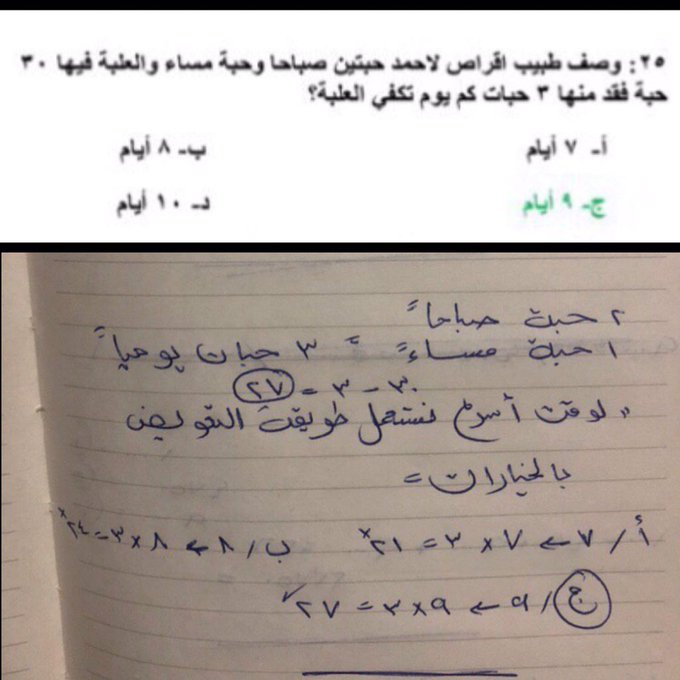 ٢٥: وصف طبيب اقراص لاحمد حبتين صباحا وحبة مساء والعلبة فيها ٣٠
حبة فقد منها ٣ حبات كم يوم تكفي العلبة؟
أ- ٧ أيام
ب- ٨ أيام
ج- ٩ أيام
د- ١٠ أيام
٢ حبة صباحاً
١ حبة مساءً = ٣ حبات يومياً
٣٠ - ٣ = ٢٧
لوقت أسرع نستعمل طريقة التعويض
بالخيارات =
أ/ ٧ ← ٧ × ٣ = ٢١ ×
ب/ ٨ ← ٨ × ٣ = ٢٤ ×
ج/ ٩ ← ٩ × ٣ = ٢٧ ✓